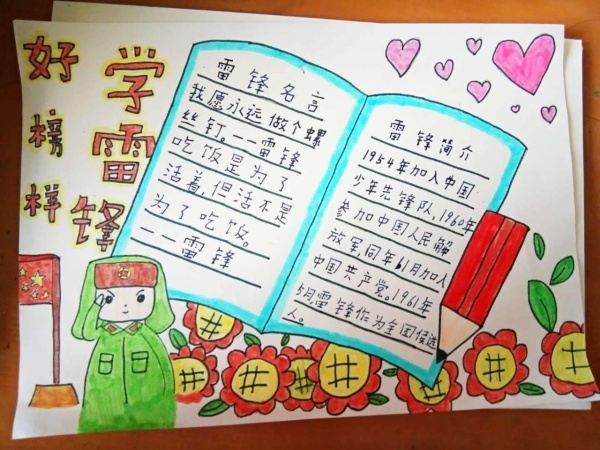 学雷锋
好榜样
雷锋名言
我愿永远做个螺
丝钉。——雷锋
吃饭是为了
活着,但活不是
为了吃饭。
——雷锋
雷锋简介
1954年加入中国
少年先锋队,1960年
参加中国人民解
放军,同年11月加入
中国共产党。1961年
5月,雷锋作为全国候选
人。